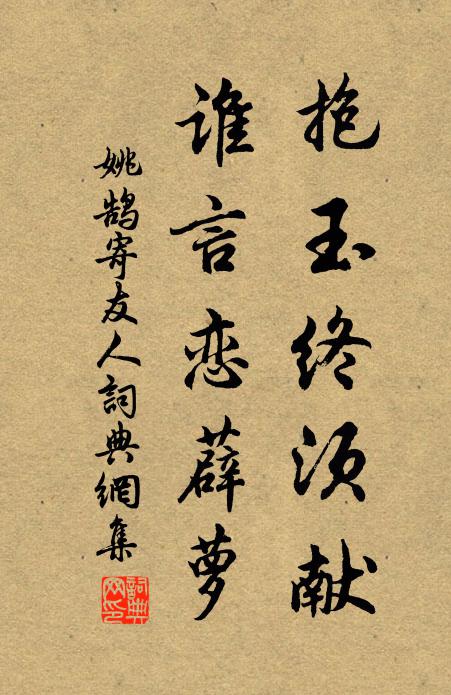 抱玉终须献
谁言恋薜萝
姚鹄寄友人词典網集
詞典網印